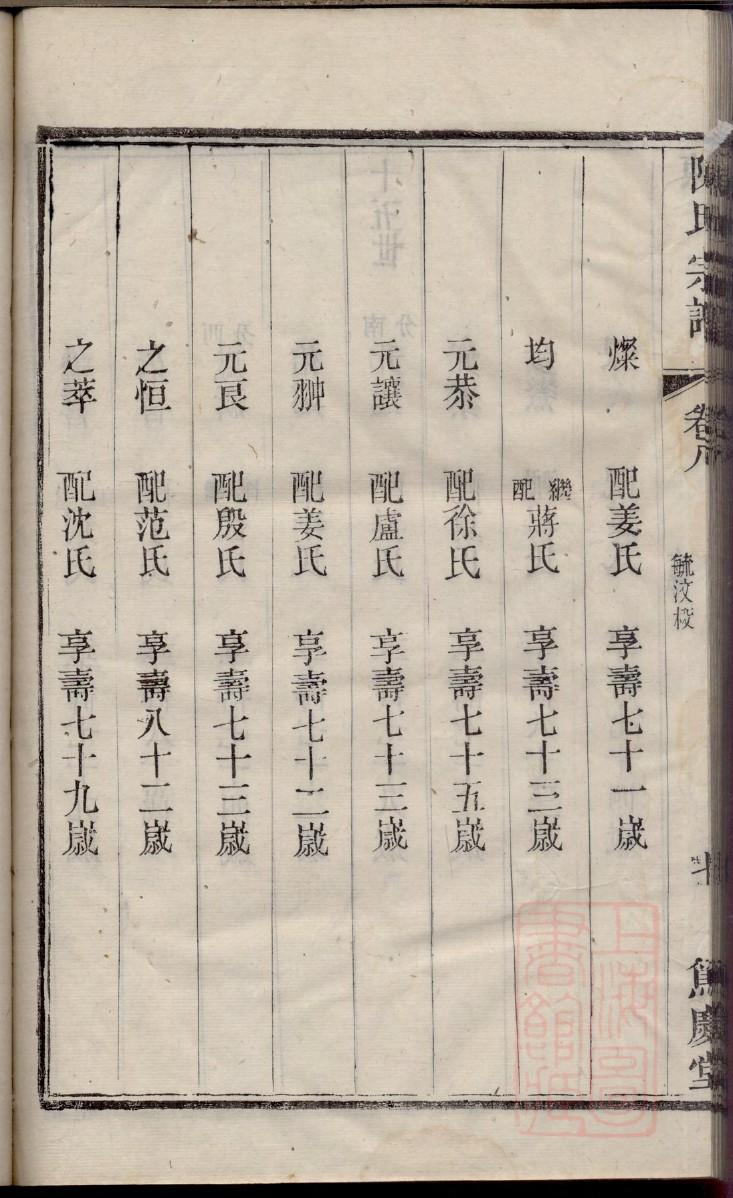 陳氏宗譜
卷八
毓汶校
篤慶堂
燦 配姜氏 享壽七十一歲
均 繼配蔣氏 享壽七十三歲
元恭 配徐氏 享壽七十五歲
元讓 配盧氏 享壽七十三歲
元翀 配姜氏 享壽七十二歲
元良 配殷氏 享壽七十三歲
之恒 配范氏 享壽八十二歲
之萃 配沈氏 享壽七十九歲
上海圖書館藏